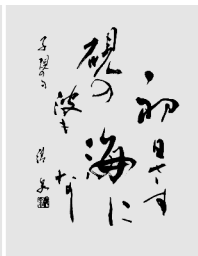 初日さす
硯の
海に
波も
なし
子規の句